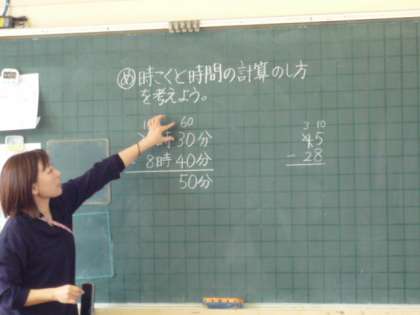 め 時こくと時間の計算のし方
を考えよう。
60
時30分
8時40分
50分
3 10
45
-28